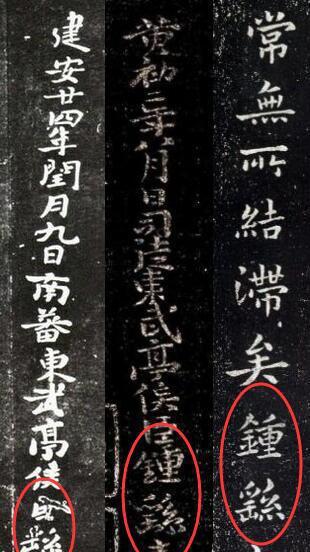 建安廿四年閏月九日南蕃東武亭侯臣繇
黃初二年八月日司徒東武亭侯臣鍾繇
常無所結滯矣鍾繇